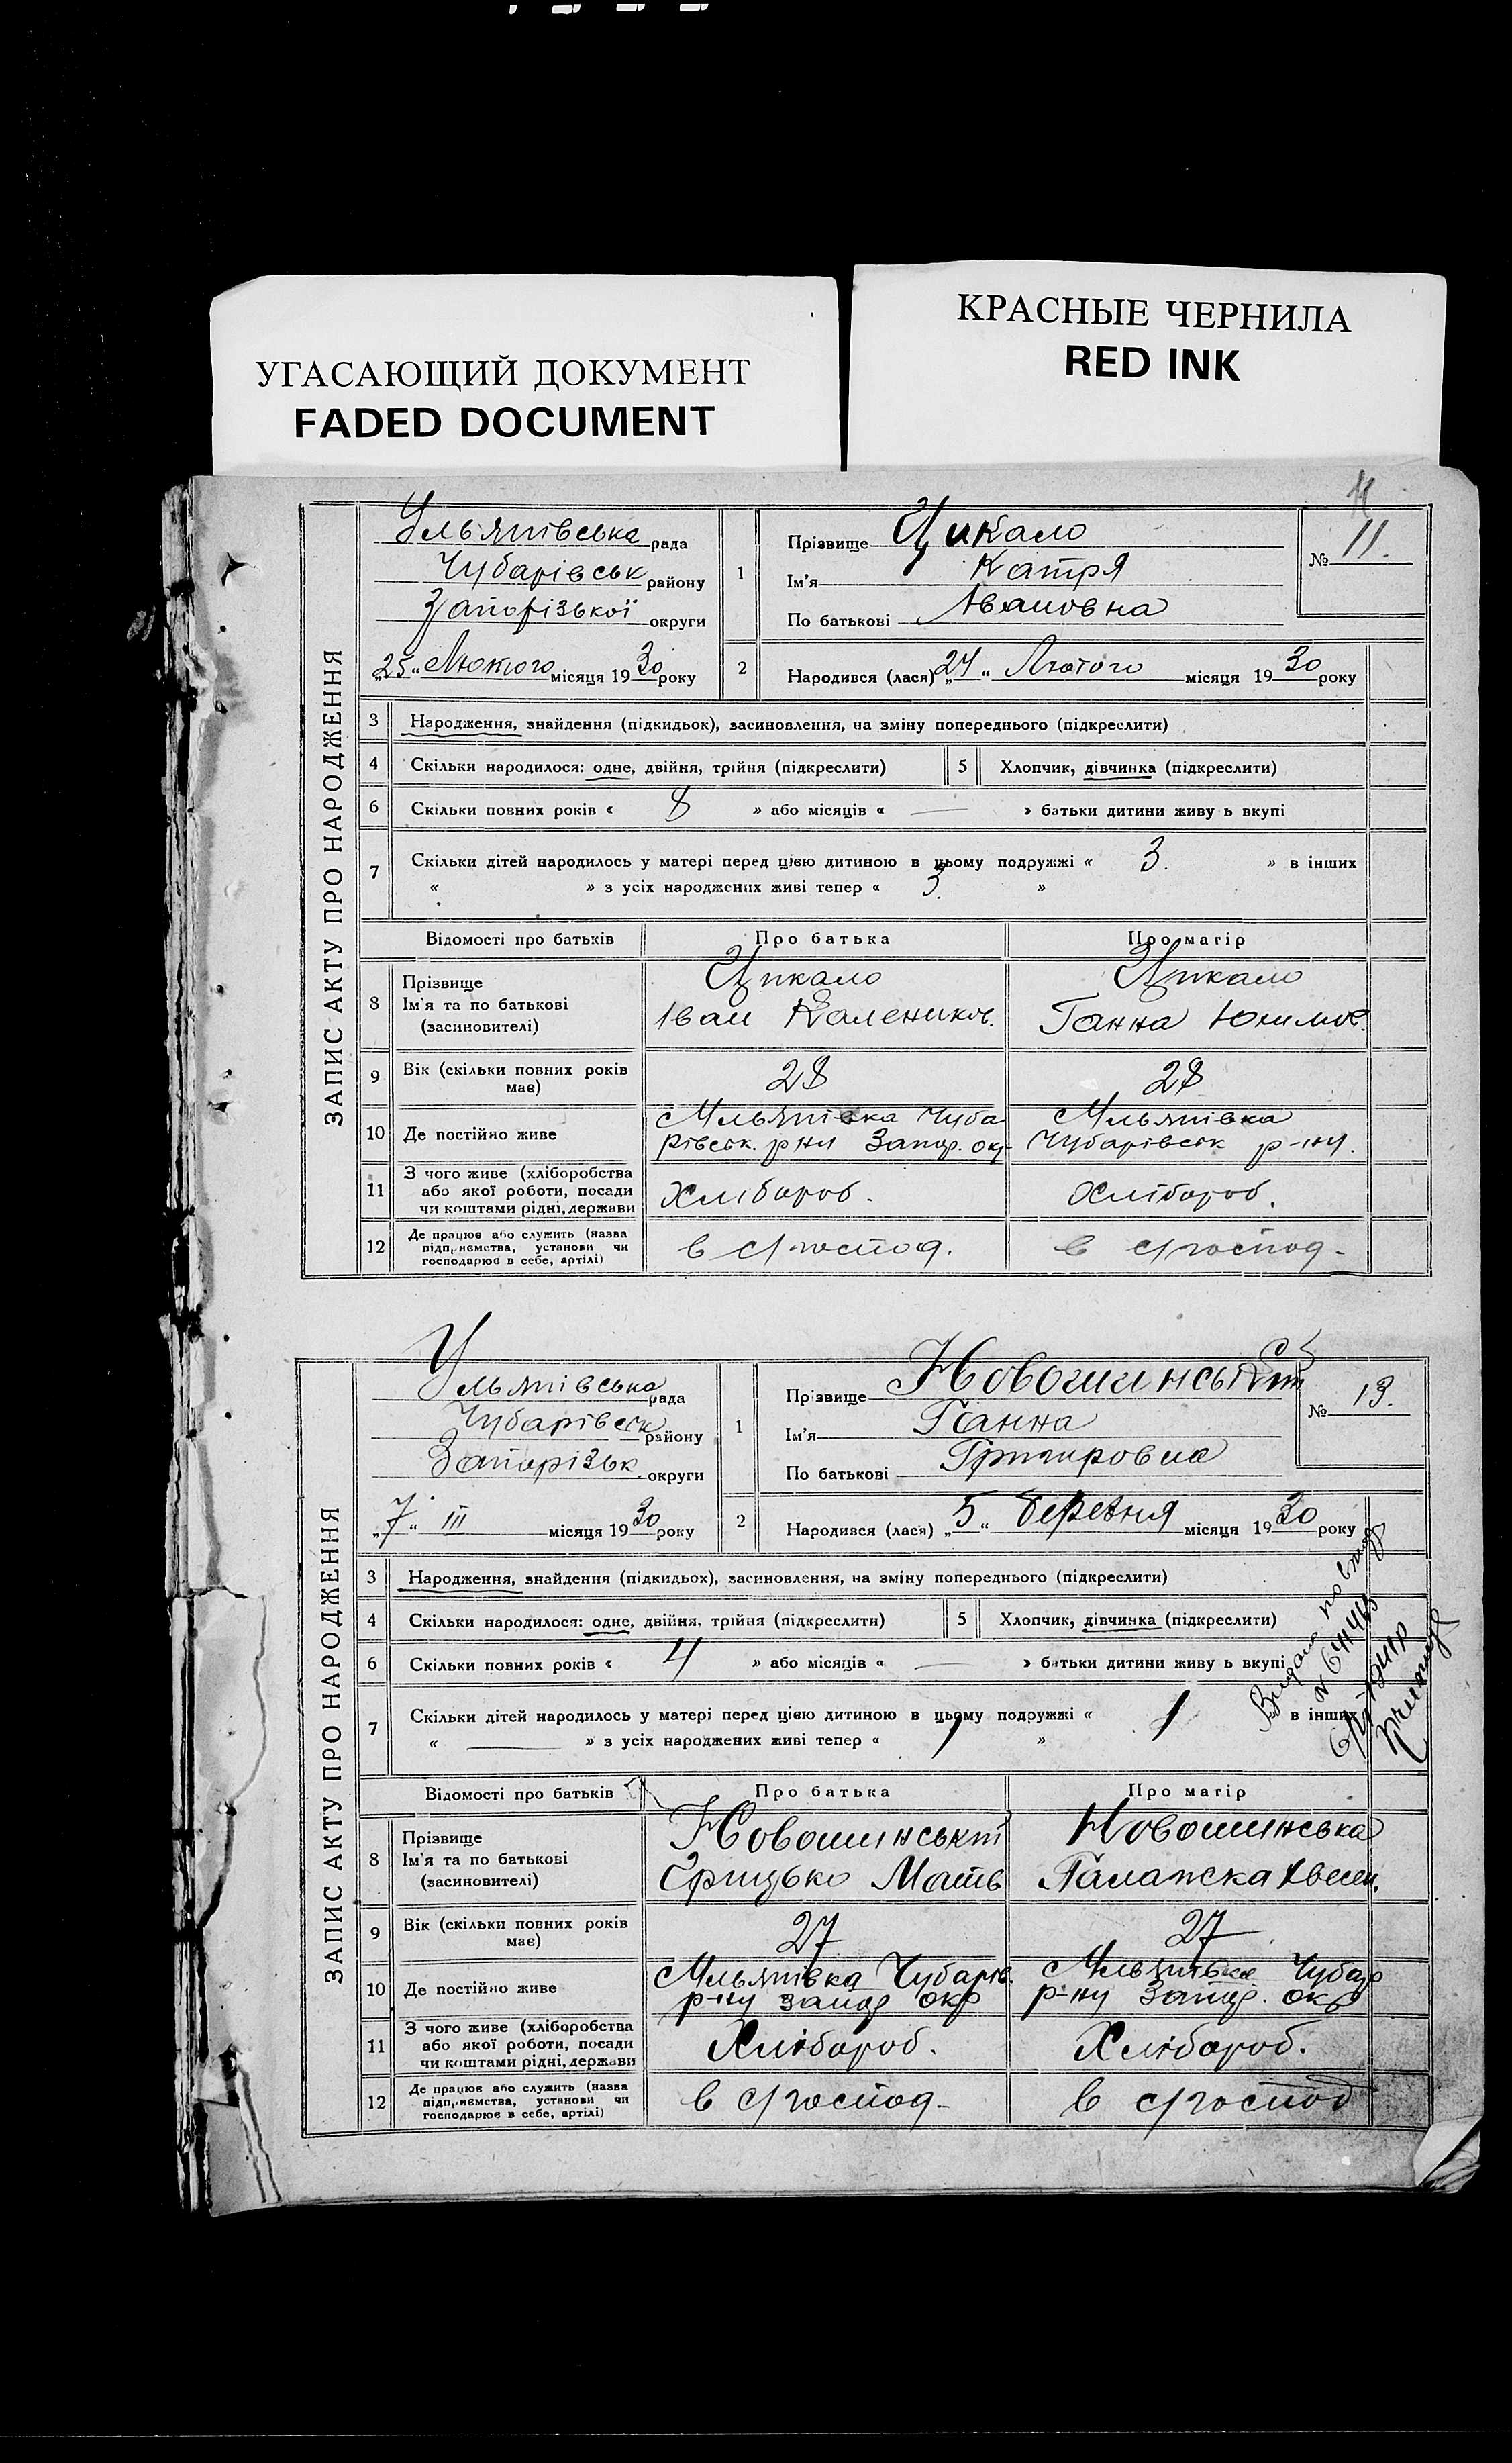 УГАСАЮЩИЙ ДОКУМЕНТ
FADED DOCUMENT
КРАСНЫЕ ЧЕРНИЛА
RED INK
11
ЗАПИС АКТУ ПРО НАРОДЖЕННЯ
Ульянівська рада
Чубарівськ району
Запорізької округи
„25“ Лютого місяця 1930 року
1 Прізвище Цикало
Ім'я Катря
По батькові Івановна
№ 11.
2 Народився (лася) „24“ Лютого місяця 1930 року
3 Народження, знайдення (підкидьок), засиновлення, на зміну попереднього (підкреслити)
4 Скільки народилося: одне, двійня, трійня (підкреслити) 5 Хлопчик, дівчинка (підкреслити)
6 Скільки повних років « 8 » або місяців « — » батьки дитини живу ь вкупі
7 Скільки дітей народилось у матері перед цією дитиною в цьому подружжі « 3. » в інших
« » з усіх народжених живі тепер « 3. »
Відомості про батьків Про батька Про матір
8 Прізвище Цикало Цикало
Ім'я та по батькові Іван Калеников. Ганна Юхимов.
(засиновителі)
9 Вік (скільки повних років має) 28 28
10 Де постійно живе Ульянівка Чуба Ульянівка
рівськ. р-ну Запор. окр. Чубарівськ р-ну.
11 З чого живе (хліборобства
або якої роботи, посади Хлібороб. Хлібороб.
чи коштами рідні, держави
12 Де працює або служить (назва
підприємства, установи чи в с/господ. в с/господ-
господарює в себе, артілі)
ЗАПИС АКТУ ПРО НАРОДЖЕННЯ
Ульянівська рада
Чубарівськ району
Запорізьк. округи
„7“ III місяця 1930 року
1 Прізвище Новошинські
Ім'я Ганна
По батькові Григоровна
№ 13.
2 Народився (лася) „5“ Березня місяця 1930 року
3 Народження, знайдення (підкидьок), засиновлення, на зміну попереднього (підкреслити)
4 Скільки народилося: одне, двійня, трійня (підкреслити) 5 Хлопчик, дівчинка (підкреслити)
6 Скільки повних років « 4 » або місяців « — » батьки дитини живу ь вкупі
7 Скільки дітей народилось у матері перед цією дитиною в цьому подружжі « 1 » в інших
« — » з усіх народжених живі тепер « 1 »
Видано
Відомості про батьків Про батька Про матір
8 Прізвище Новошинські Новошинська
Ім'я та по батькові Грицько Матв Палажка Овсеи.
(засиновителі)
9 Вік (скільки повних років має) 27 27
10 Де постійно живе Ульянівка Чубарів. Ульянівка Чубар
р-ну Запор окр р-ну Запор. окр
11 З чого живе (хліборобства
або якої роботи, посади Хлібороб. Хлібороб.
чи коштами рідні, держави
12 Де працює або служить (назва
підприємства, установи чи в с/господ- в с/господ
господарює в себе, артілі)